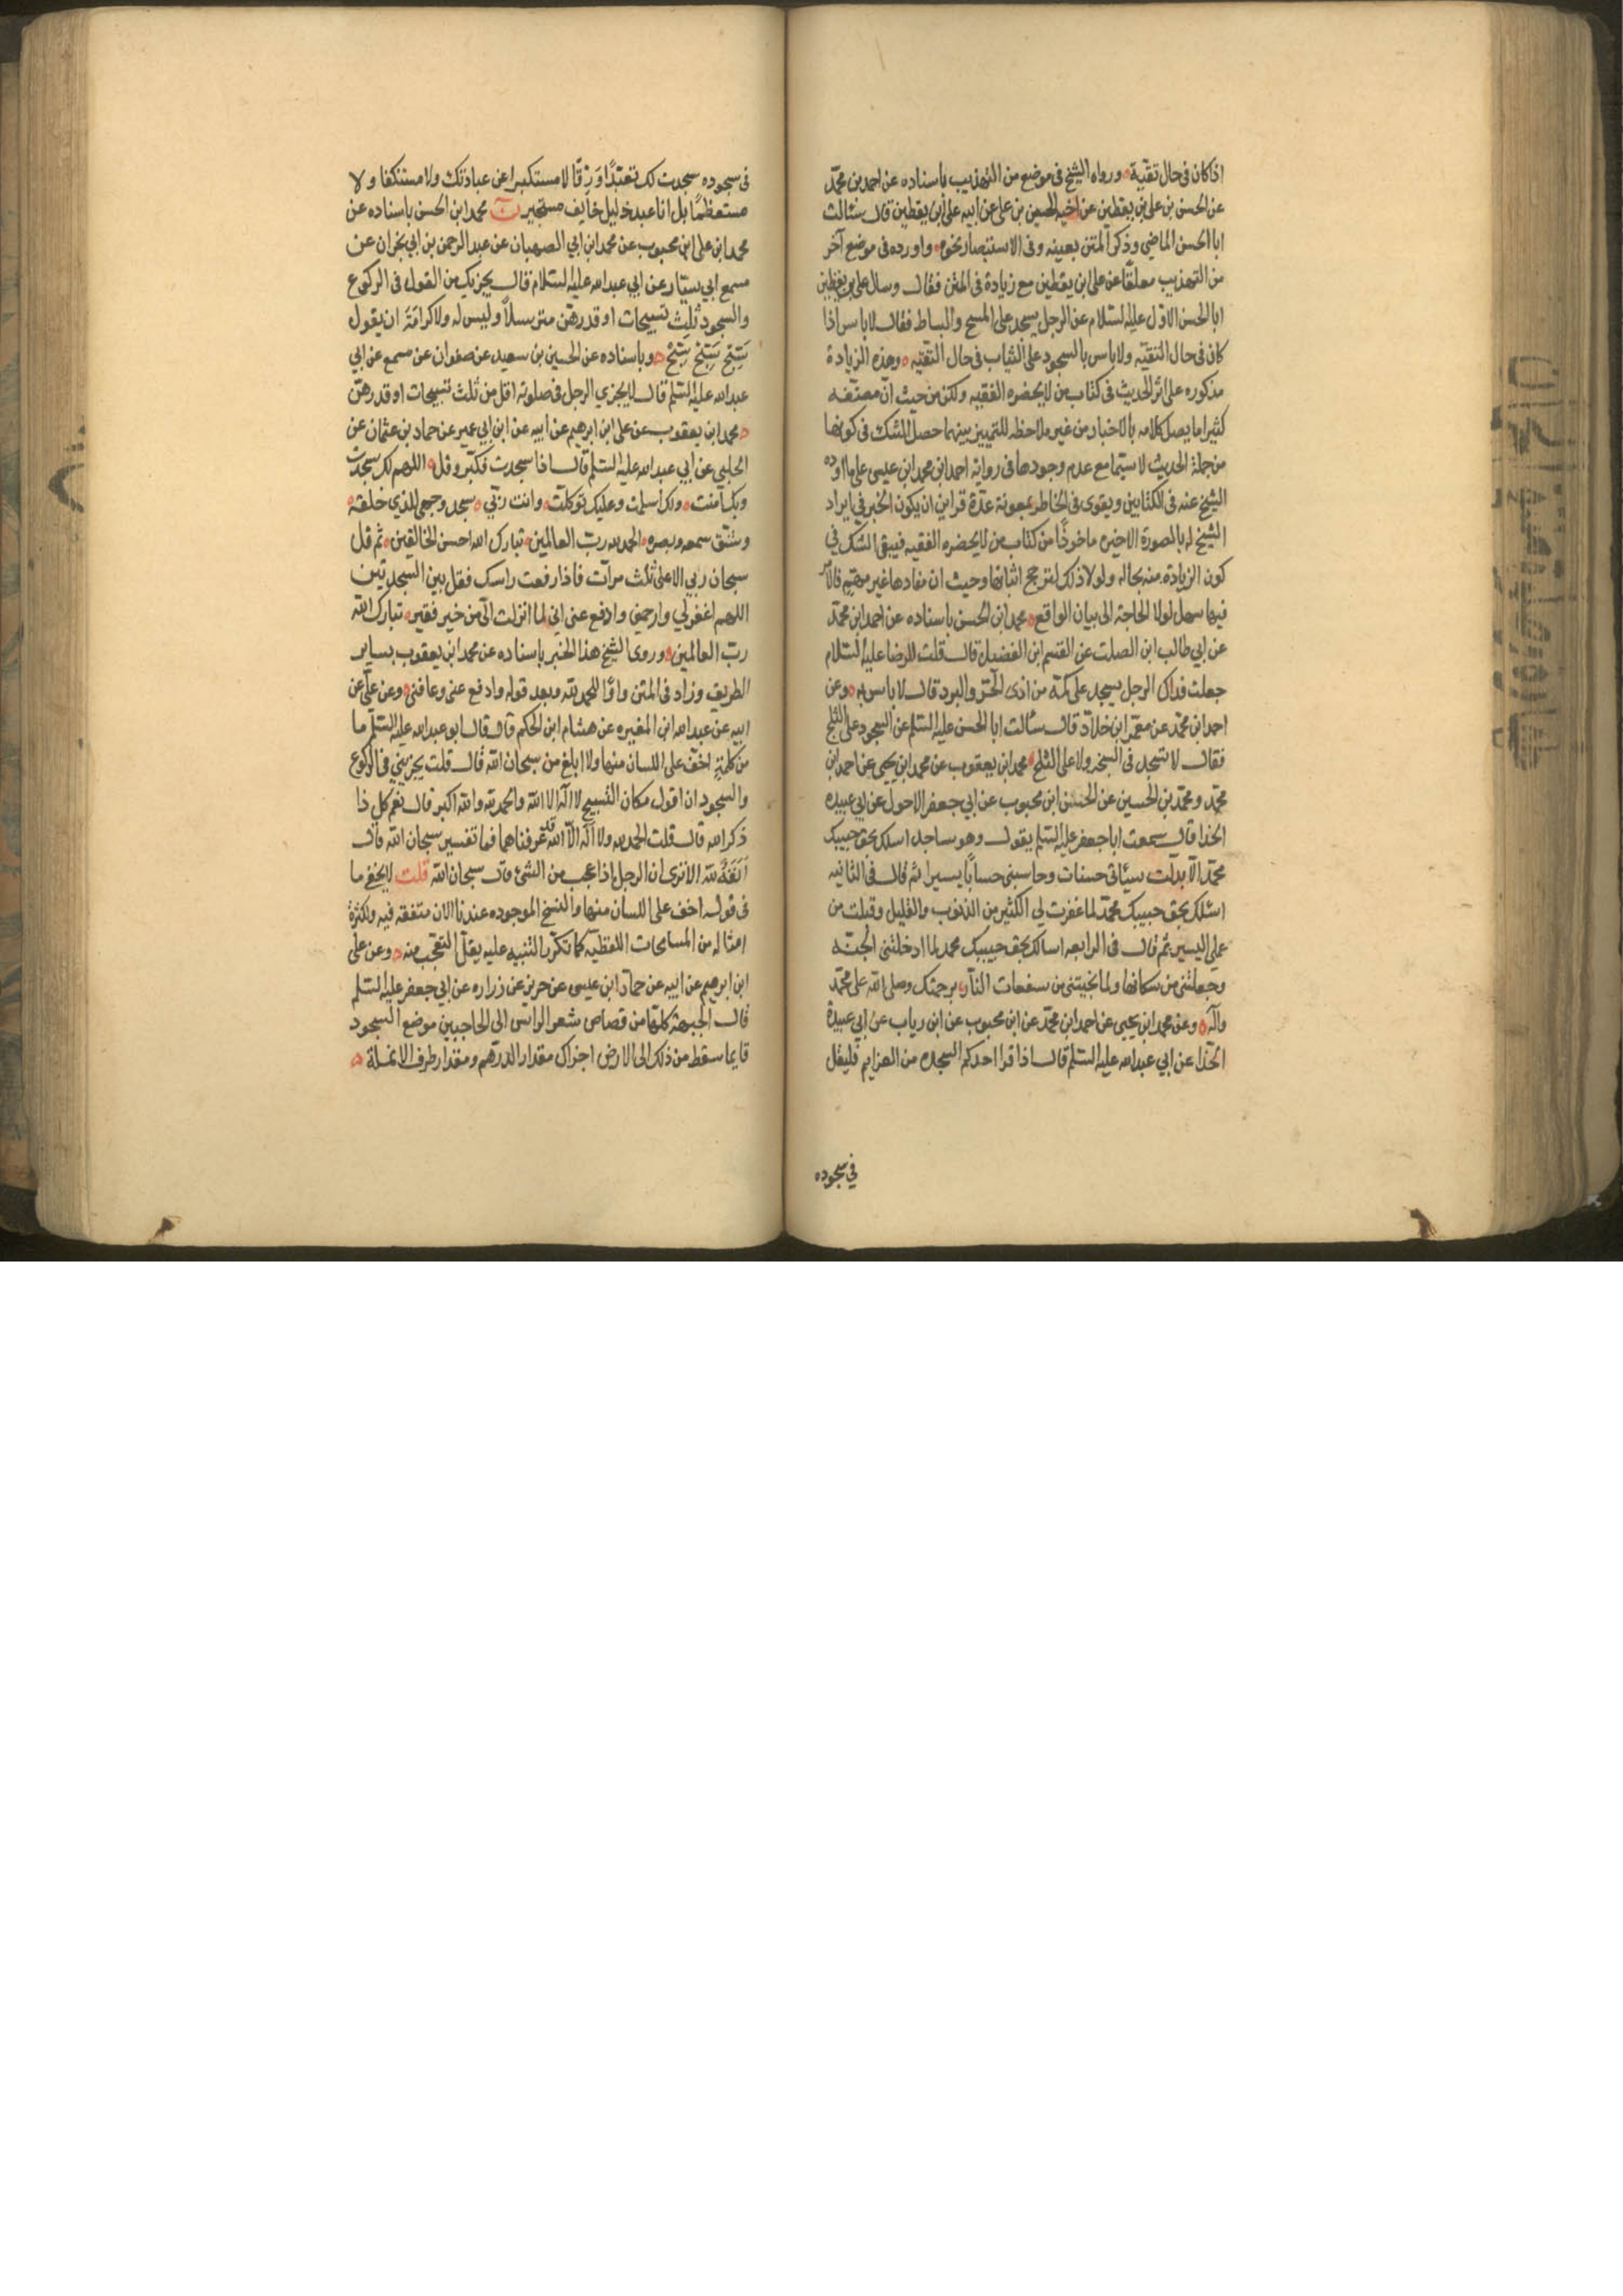 اذا كان فى حال تقية ورواه الشيخ فى موضع من التهذيب باسناده عن احمد بن محمد
عن الحسن بن على بن يقطين عن اخيه الحسين بن على عن ابيه على بن يقطين قال سئالت
ابا الحسن الماضي وذكر المتن بعينه وفى الاستبصار نحوه واورده فى موضع آخر
من التهذيب معلقا عن على ابن يقطين مع زيادة فى المتن فقال وسال على بن يقطين
ابا الحسن الاول عليه لسلام عن الرجل يسجد على المسح والبساط فقال لا باس اذا
كان فى حال التقيه ولا باس بالسجود على الثياب فى حال التقيه وهذه الزيادة
مذكوره على اثر الحديث فى كتاب من لا يحضره الفقيه ولكن من حيث ان مصنفه
كثيرا ما يصل كلامه بالاخبار من غير ملاحظه للتمييز بينهما حصل الشك فى كونها
من جملة الحديث لا سيما مع عدم وجودها فى رواية احمد ابن محمد ابن عيسى على ما اورده
الشيخ عنه فى الكتابين ويقوى فى الخاطر بمعونة عدة قراين ان يكون الخبر في ايراد
الشيخ له بالصورة الاخيره ماخوذا من كتاب من لا يحضره الفقيه فيبقى الشك في
كون الزيادة منه بحاله ولولا ذلك لترجح اثباتها وحيث ان مفادها غير مهم فالامر
فيها سهل لولا الحاجة الى بيان الواقع محمد ابن الحسن باسناده عن احمد ابن محمد
عن ابي طالب ابن الصلت عن القسم ابن الفضيل قال قلت للرضا عليه لسلام
جعلت فداك الرجل يسجد على كمه من اذى الحر والبرد قال لا باس به وعن
احمد ابن محمد عن معمر ابن خلاد قال سئالت ابا الحسن عليه السلم عن السجود على الثلج
فقال لا تسجد فى السبخه ولا على الثلج محمد ابن يعقوب عن محمد ابن يحيى عن احمد ابن
محمد ومحمد بن الحسين عن الحسن ابن محبوب عن ابي جعفر الاحول عن ابي عبيده
الحذا قال سمعت ابا جعفر عليه السلم يقول وهو ساجد اسلك بحق حبيبك
محمد الا بدلت سيئاتى حسنات وحاسبنى حسابا يسيرا ثم قال فى الثانيه
اسئلك بحق حبيبك محمد لما غفرت لي الكثير من الذنوب والقليل وقبلت من
عملي اليسير ثم قال فى الرابعه اسالك بحق حبيبك محمد لما ادخلتنى الجنه
وجعلتنى من سكانها ولما نجيتنى من سفعات النار برحمتك وصلى الله على محمد
وآله وعن محمد ابن يحيى عن احمد ابن محمد عن ابن محبوب عن ابن رياب عن ابي عبيدة
الحذا عن ابي عبدالله عليه السلم قال اذا قرا احدكم السجده من العزايم فليقل
في سجوده
فى سجوده سجدت لك تعبدا ورقا لا مستكبرا عن عبادتك ولا مستنكفا ولا
مستعظما بل انا عبد ذليل خايف مستجير محمد ابن الحسن باسناده عن
محمد ابن على ابن محبوب عن محمد ابن ابي الصهبان عن عبد الرحمن بن ابي نجران عن
مسمع ابي سيار عن ابي عبدالله عليه لسلام قال يجزيك من القول فى الركوع
والسجود ثلث تسبيحات او قدرهن مترسلا وليس له ولا كرامة ان يقول
سبح سبح سبح وباسناده عن الحسين بن سعيد عن صفوان عن مسمع عن ابي
عبدالله عليه السلم قال لا يجزي الرجل فى صلوته اقل من ثلث تسبيحات او قدرهن
محمد ابن يعقوب عن على ابن ابرهيم عن ابيه عن ابن ابي عمير عن حماد بن عثمان عن
الحلبي عن ابي عبدالله عليه السلم قال اذا سجدت فكبر وقل اللهم لك سجدت
وبك آمنت ولك اسلمت وعليك توكلت وانت ربي سجد وجهي للذي خلقه
وشق سمعه وبصره الحمد لله رب العالمين تبارك الله احسن الخالقين ثم قل
سبحان ربي الاعلى ثلث مرات فاذا رفعت راسك فقل بين السجدتين
اللهم اغفر لي وارحمني وادفع عنى اني لما انزلت الى من خير فقير تبارك الله
رب العالمين وروى الشيخ هذا الخبر باسناده عن محمد ابن يعقوب بساير
الطريق وزاد فى المتن واوا للحمد لله وبعد قوله وادفع عنى وعافنى وعن علي عن
ابيه عن عبدالله ابن المغيره عن هشام ابن الحكم قال قال ابو عبدالله عليه السلم ما
من كلمة اخف على اللسان منها ولا ابلغ من سبحان الله قال قلت يجزيني فى الركوع
والسجود ان اقول مكان التسبيح لا اله الا الله والحمد لله والله اكبر قال نعم كل ذا
ذكر الله قال قلت الحمد لله ولا اله الا الله قد عرفناهما فما تفسير سبحان الله قال
انفة لله الا ترى ان الرجل اذا عجب من الشئ قال سبحان الله قلت لا يخفى ما
فى قوله اخف على اللسان منها والنسخ الموجوده عندنا الان متفقه فيه ولكثرة
امثاله من المسامحات اللفظيه كما تكرر التنبيه عليه يقل التعجب منه وعن على
ابن ابرهيم عن ابيه عن حماد ابن عيسى عن حريز عن زراره عن ابي جعفر عليه السلم
قال الجبهة كلها من قصاص شعر الراس الى الحاجبين موضع السجود
فايما سقط من ذلك الى الارض اجزاك مقدار الدرهم ومقدار طرف الانملة